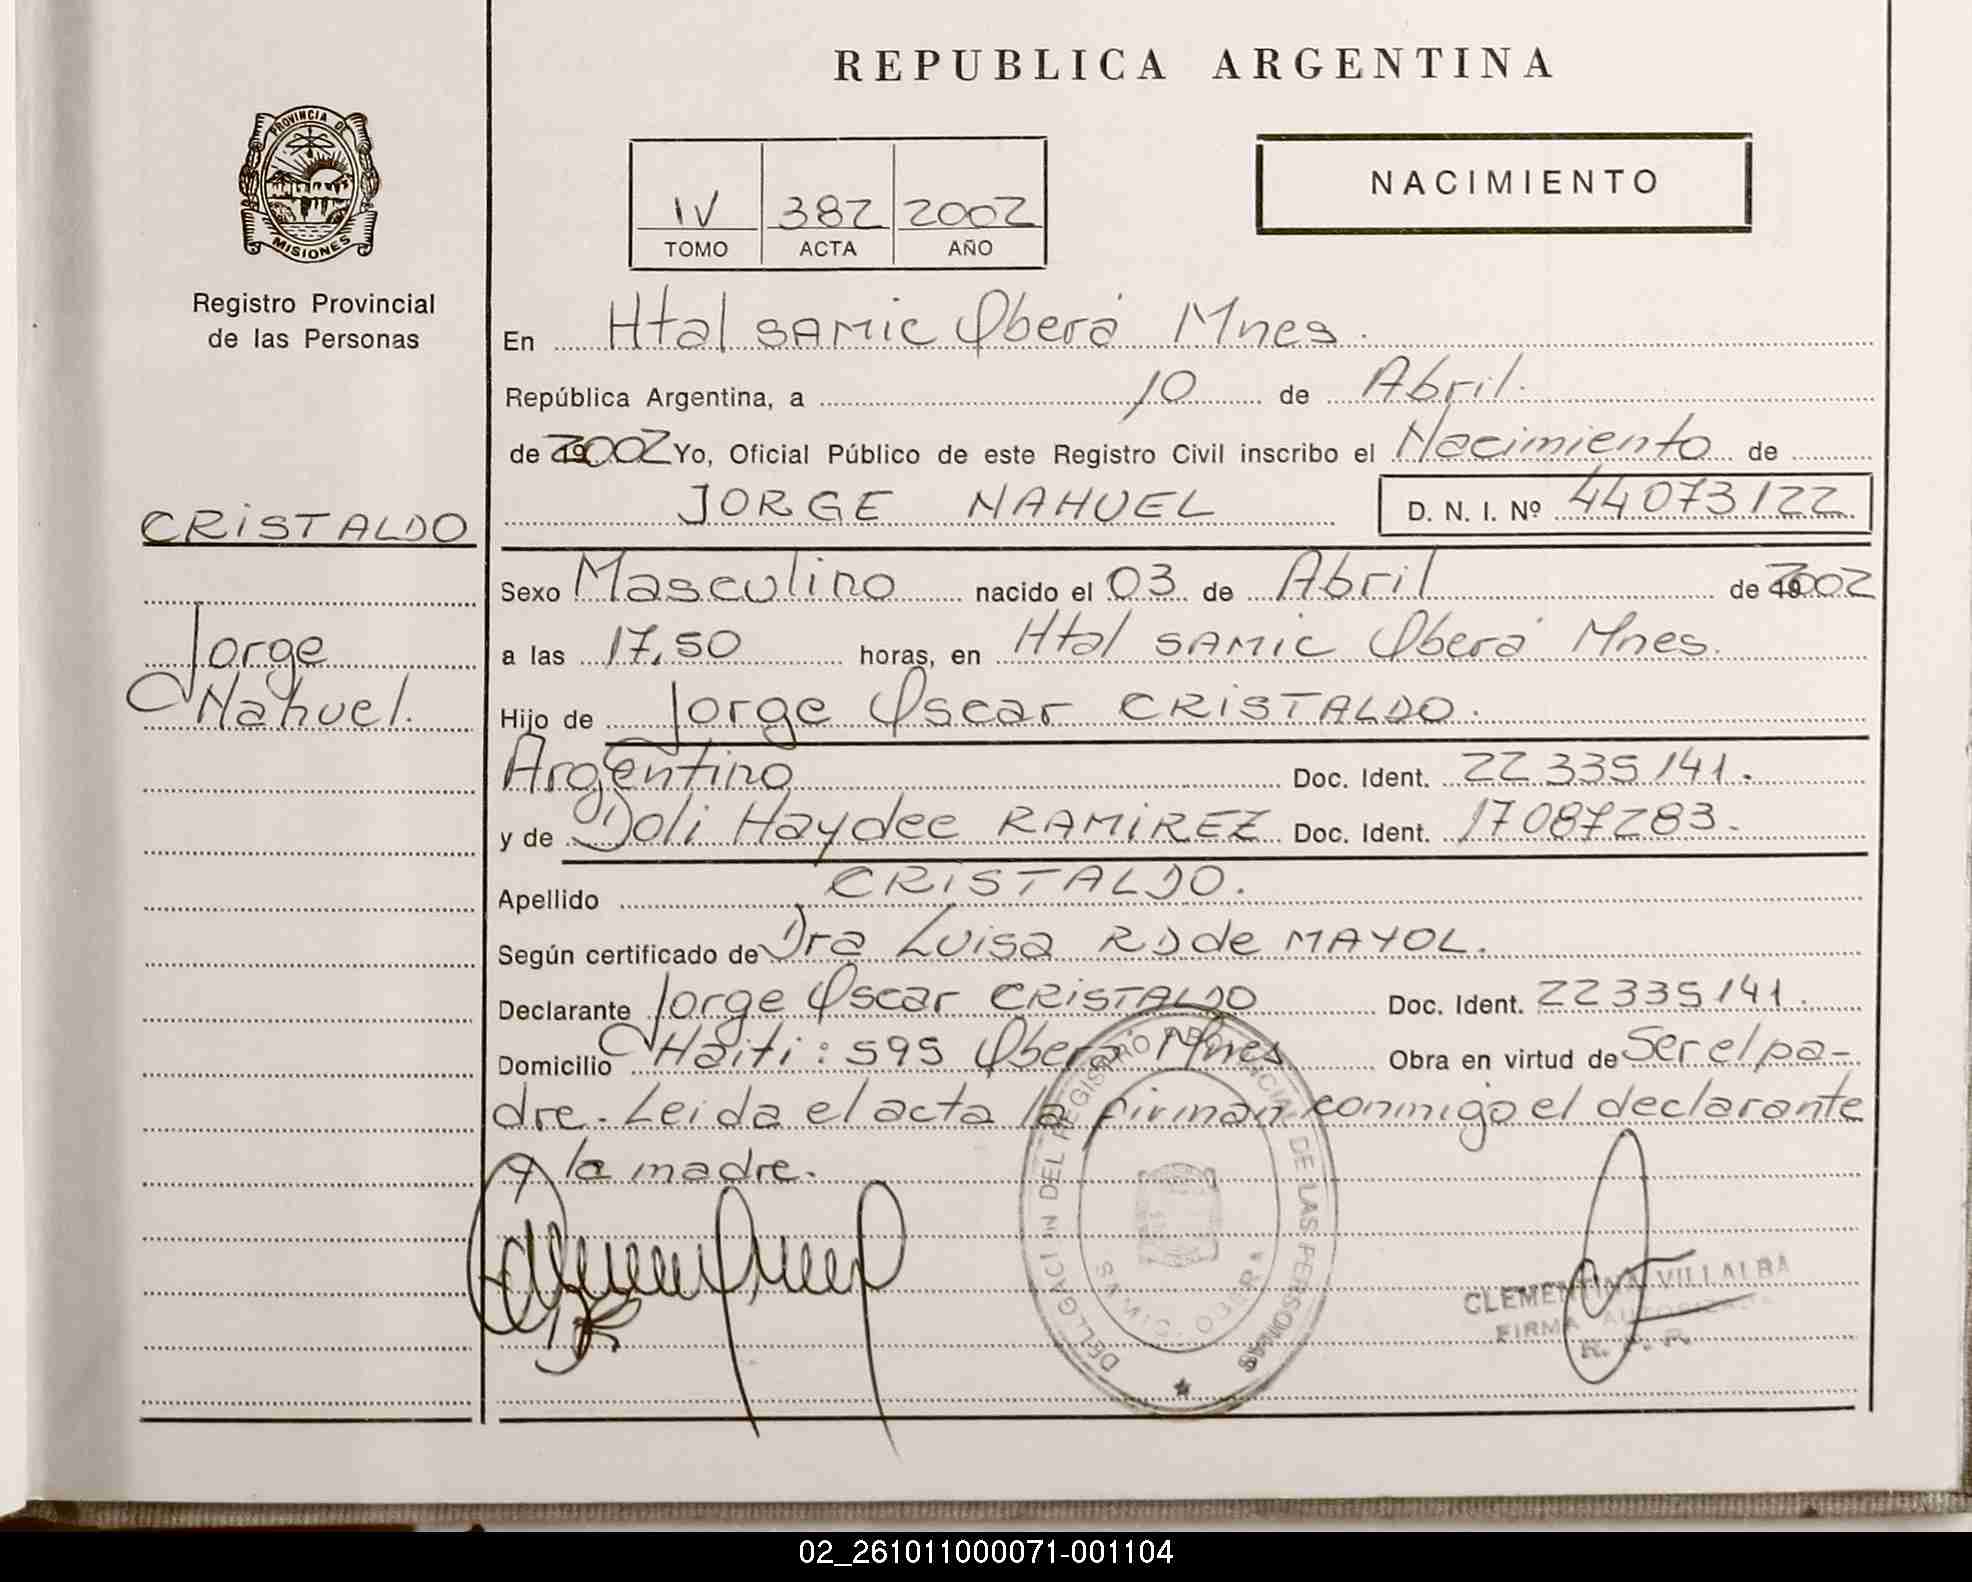 REPUBLICA ARGENTINA
PROVINCIA DE
MISIONES
Registro Provincial
de las Personas
NACIMIENTO
IV 382 2002
TOMO ACTA AÑO
En Htal SAMIC Oberá Mnes.
República Argentina, a 10 de Abril.
de 2002 Yo, Oficial Público de este Registro Civil inscribo el Nacimiento de
JORGE NAHUEL D. N. I. Nº 44073122
CRISTALDO
Jorge
Nahuel.
Sexo Masculino nacido el 03 de Abril de 2002
a las 17,50 horas, en Htal SAMIC Oberá Mnes.
Hijo de Jorge Oscar CRISTALDO.
Argentino Doc. Ident. 22335141.
y de Doli Haydee RAMIREZ Doc. Ident. 17087283.
Apellido CRISTALDO.
Según certificado de Dra Luisa RD de MAYOL.
Declarante Jorge Oscar CRISTALDO Doc. Ident. 22335141.
Domicilio Haiti: 595 Oberá Mnes Obra en virtud de Ser el pa-
dre. Leida el acta la firman conmigo el declarante
y la madre.
DELEGACION DEL REGISTRO PROVINCIAL DE LAS PERSONAS
CLEMENTINA VILLALBA
FIRMA AUTORIZADA
R. P. P.
02_261011000071-001104